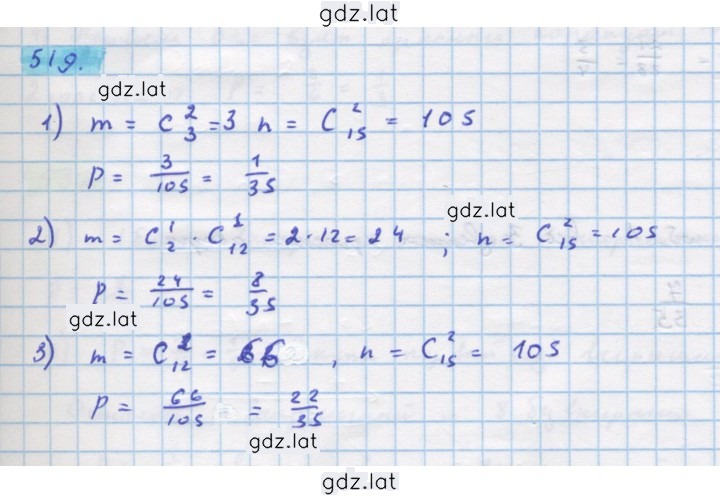 gdz.lat
519.
gdz.lat
1) m = C₃² = 3 n = C₁₅² = 105
P = 3/105 = 1/35
gdz.lat
2) m = C₂¹ · C₁₂¹ = 2 · 12 = 24 ; n = C₁₅² = 105
P = 24/105 = 8/35
gdz.lat
3) m = C₁₂² = 66 , n = C₁₅² = 105
P = 66/105 = 22/35
gdz.lat
gdz.lat